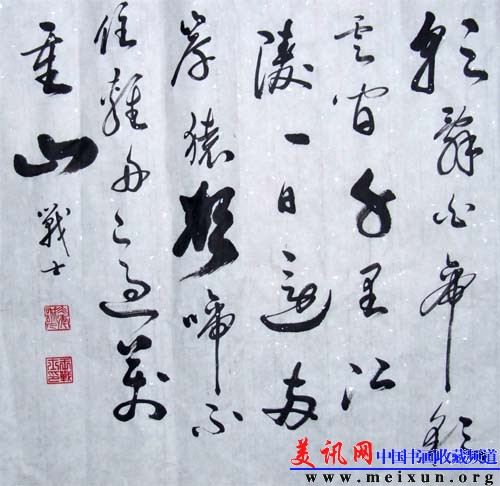 朝辭白帝彩
雲間千里江
陵一日還兩
岸猿聲啼不
住輕舟已過萬
重山
戰士
美讯网 中国书画收藏频道
www.meixun.org